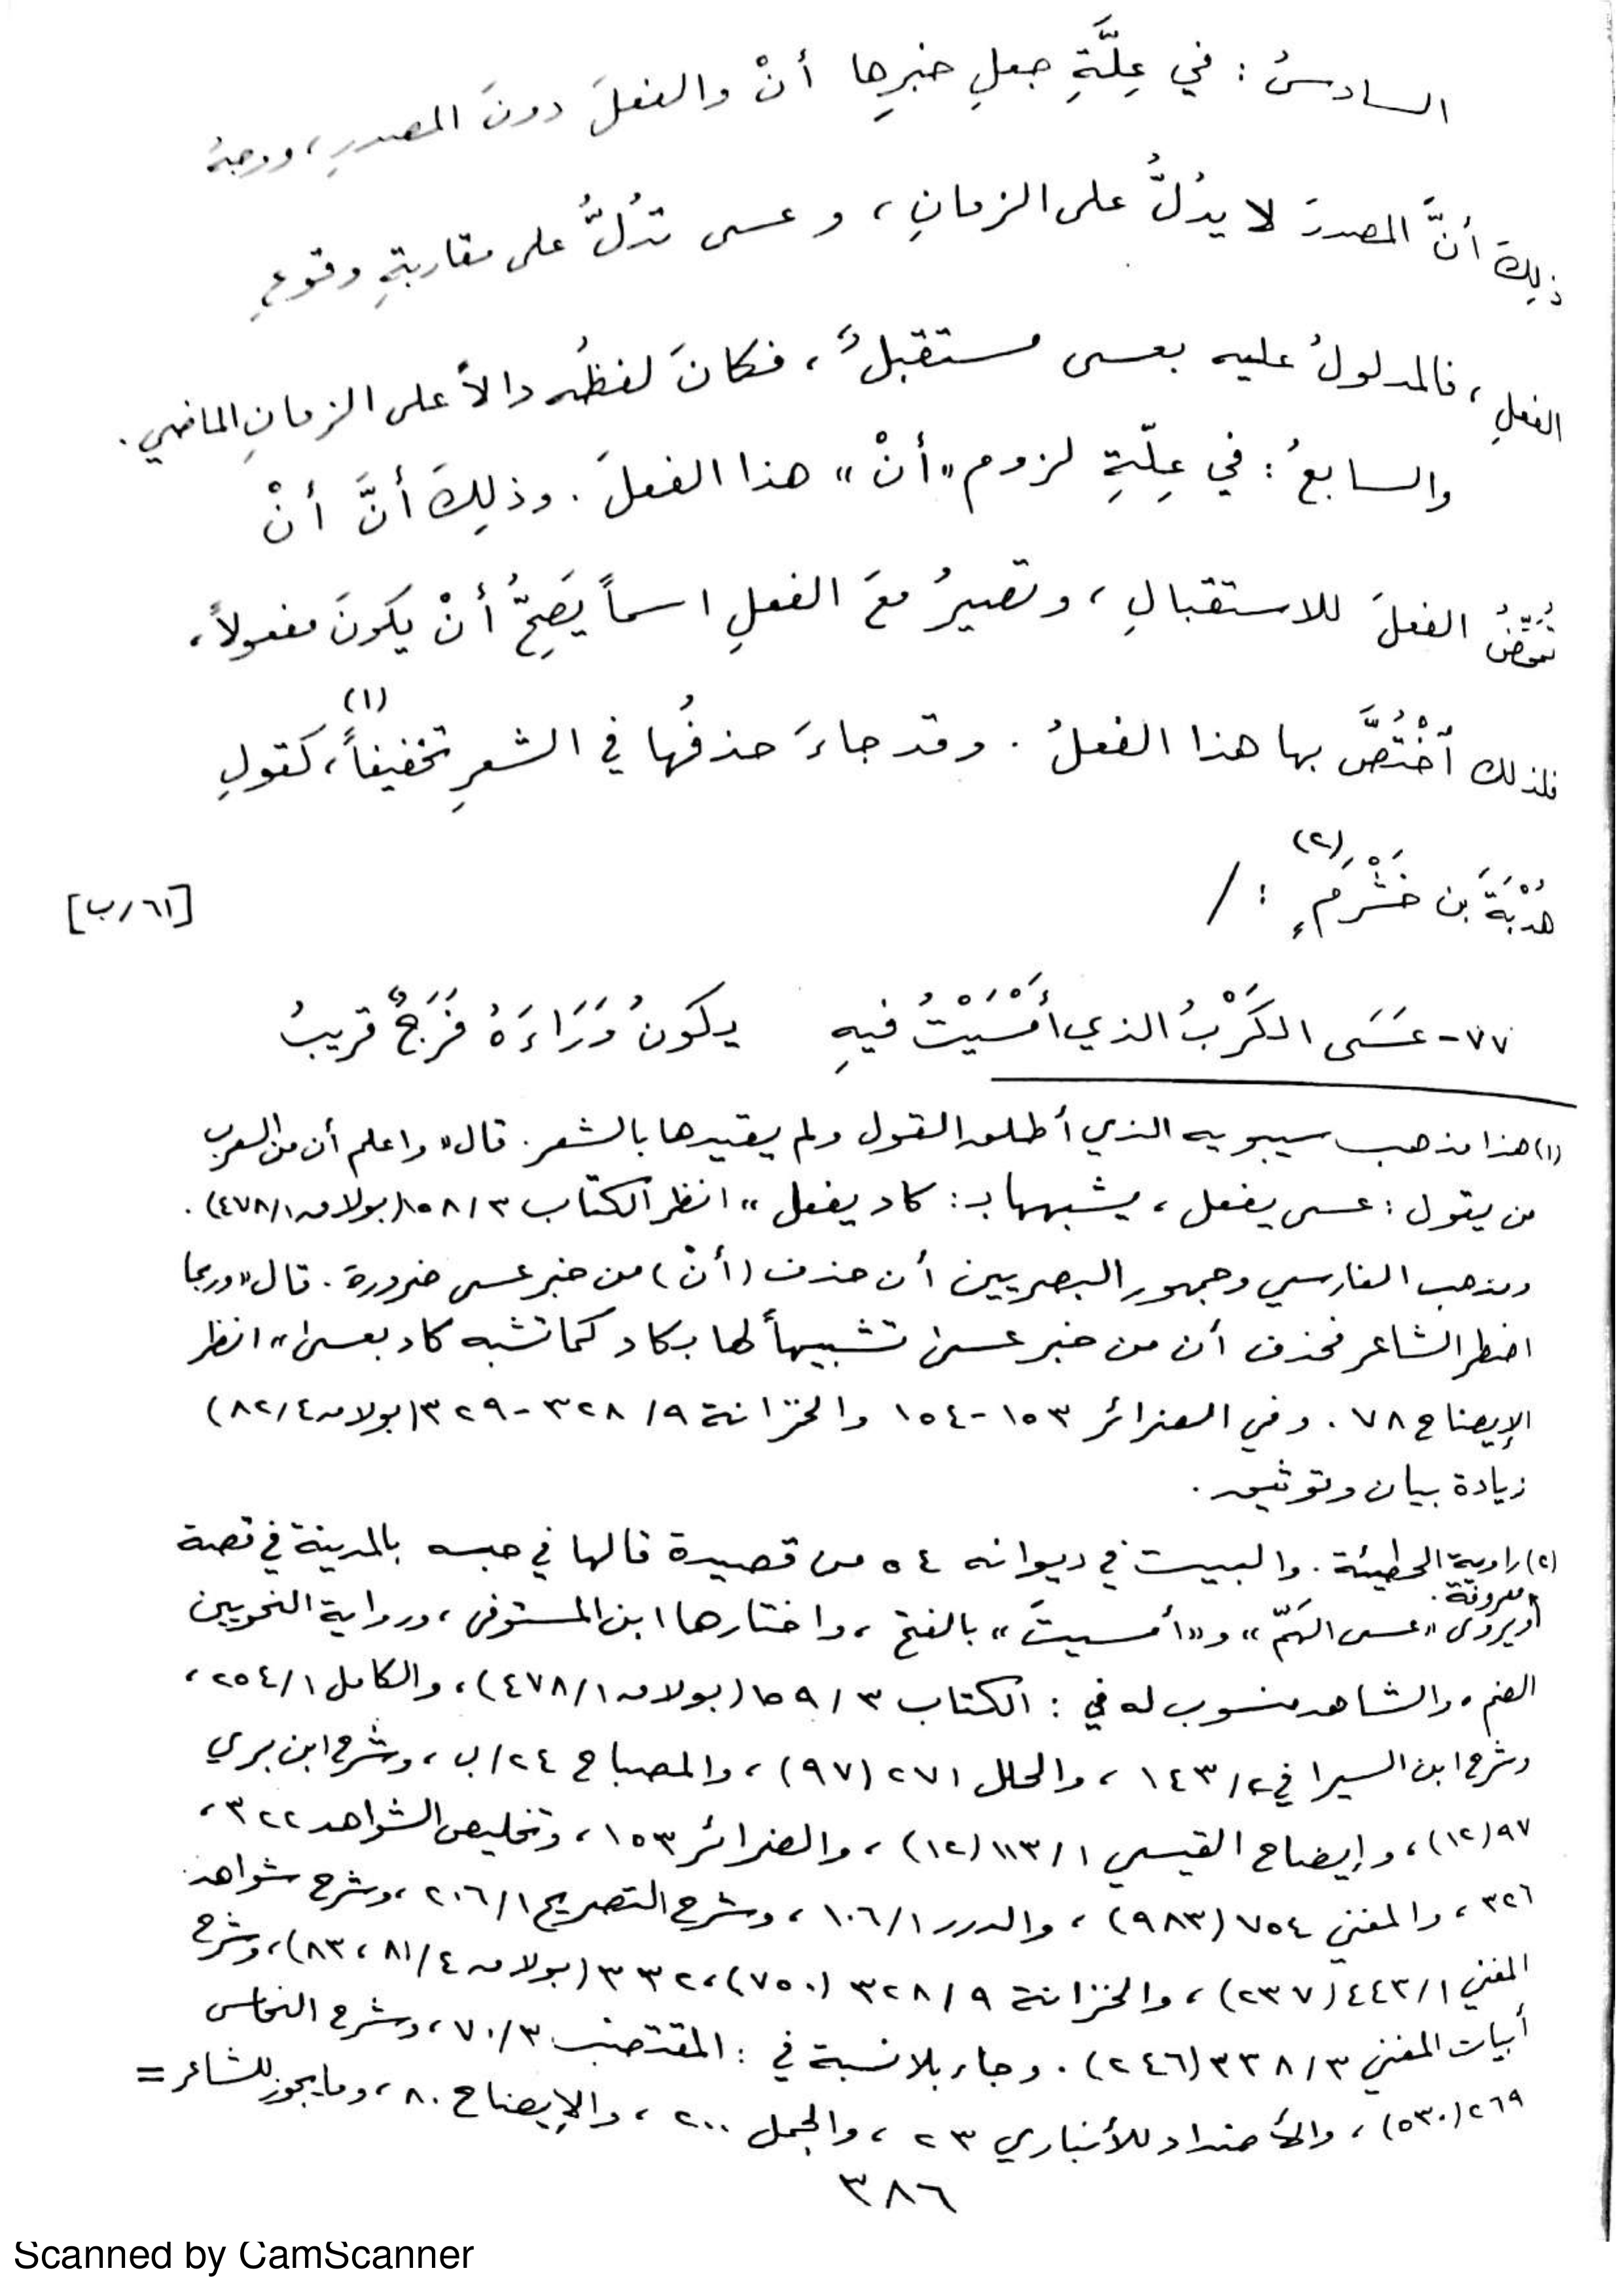 السادسُ : في عِلَّةِ جعلِ خبرِها أنْ والفعلَ دونَ المصدرِ ، ووجهُ
ذلِكَ أنَّ المصدرَ لا يدُلُّ على الزمانِ ، وعسى تدُلُّ على مقاربةِ وقوعِ
الفعلِ ، فالمدلولُ عليه بعسى مستقبلٌ ، فكانَ لفظُه دالاً على الزمانِ الماضي .
والسابعُ : في عِلّةِ لزوم «أنْ» هذا الفعلَ . وذلِكَ أنَّ أنْ
تُمَحِّضُ الفعلَ للاستقبالِ ، وتصيرُ معَ الفعلِ اسماً يَصَِحُّ أنْ يكونَ مفعولاً ،
فلذلك اُخْتُصَّ بها هذا الفعلُ . وقد جاءَ حذفُها في الشعرِ تخفيفاً(١)، كقولِ
هُدْبَةَ بن خَشْرَمٍ(٢) : /
[٦١/ب]
٧٧- عَسَى الكَرْبُ الذي أمْسَيْتُ فيهِ يكونُ وَرَاءَهُ فَرَجٌ قريبُ
(١) هذا مذهب سيبويه الذي أطلق القول ولم يقيدها بالشعر . قال «واعلم أن من العرب
من يقول : عسى يفعل ، يشبهها بـ : كاد يفعل » انظر الكتاب ١٥٨/٣ (بولاق ٤٧٨/١) .
ومذهب الفارسي وجمهور البصريين أن حذف (أنْ) من خبر عسى ضرورة . قال «وربما
اضطر الشاعر فحذف أن من خبر عسىٰ تشبيهاً لها بكاد كما تشبه كاد بعسىٰ » انظر
الإيضاح ٧٨ . وفي الضرائر ١٥٣-١٥٤ والخزانة ٣٢٨/٩-٣٢٩ (بولاق ٨٢/٤)
زيادة بيان وتوثيق .
(٢) راوية الحطيئة . والبيت في ديوانه ٥٤ من قصيدة قالها في حبسه بالمدينة في قصة
معروفة .
ويروى «عسى الهَمّ» و«أمسيتَ» بالفتح ، واختارها ابن المستوفى ، ورواية النحويين
الضم . والشاهد منسوب له في : الكتاب ١٥٩/٣ (بولاق ٤٧٨/١) ، والكامل ٢٥٤/١ ،
وشرح ابن السيرافي ١٤٣/٢ ، والحلل ٢٧١ (٩٧) ، والمصباح ٢٤/ب ، وشرح ابن بري
٩٧ (١٢) ، وإيضاح القيسي ١١٣/١ (١٢) ، والضرائر ١٥٣ ، وتخليص الشواهد ٣٢٢ ،
٣٢٦ ، والمغني ٧٥٤ (٩٨٣) ، والدرر ١٠٦/١ ، وشرح التصريح ٢٠٦/١ ، وشرح شواهد
المغني ٤٤٣/١ (٢٣٧) ، والخزانة ٣٢٨/٩ (٧٥٠) ، ٣٣٢ (بولاق ٨١/٤ ، ٨٣) ، وشرح
أبيات المغني ٣٣٨/٣ (٢٤٦) . وجاء بلا نسبة في : المقتضب ٧٠/٣ ، وشرح النحاس
٢٦٩ (٥٣٠) ، والأضداد للأنباري ٢٣ ، والجمل ٢٠٠ ، والإيضاح ٨٠ ، وما يجوز للشاعر =
٣٨٦
Scanned by CamScanner